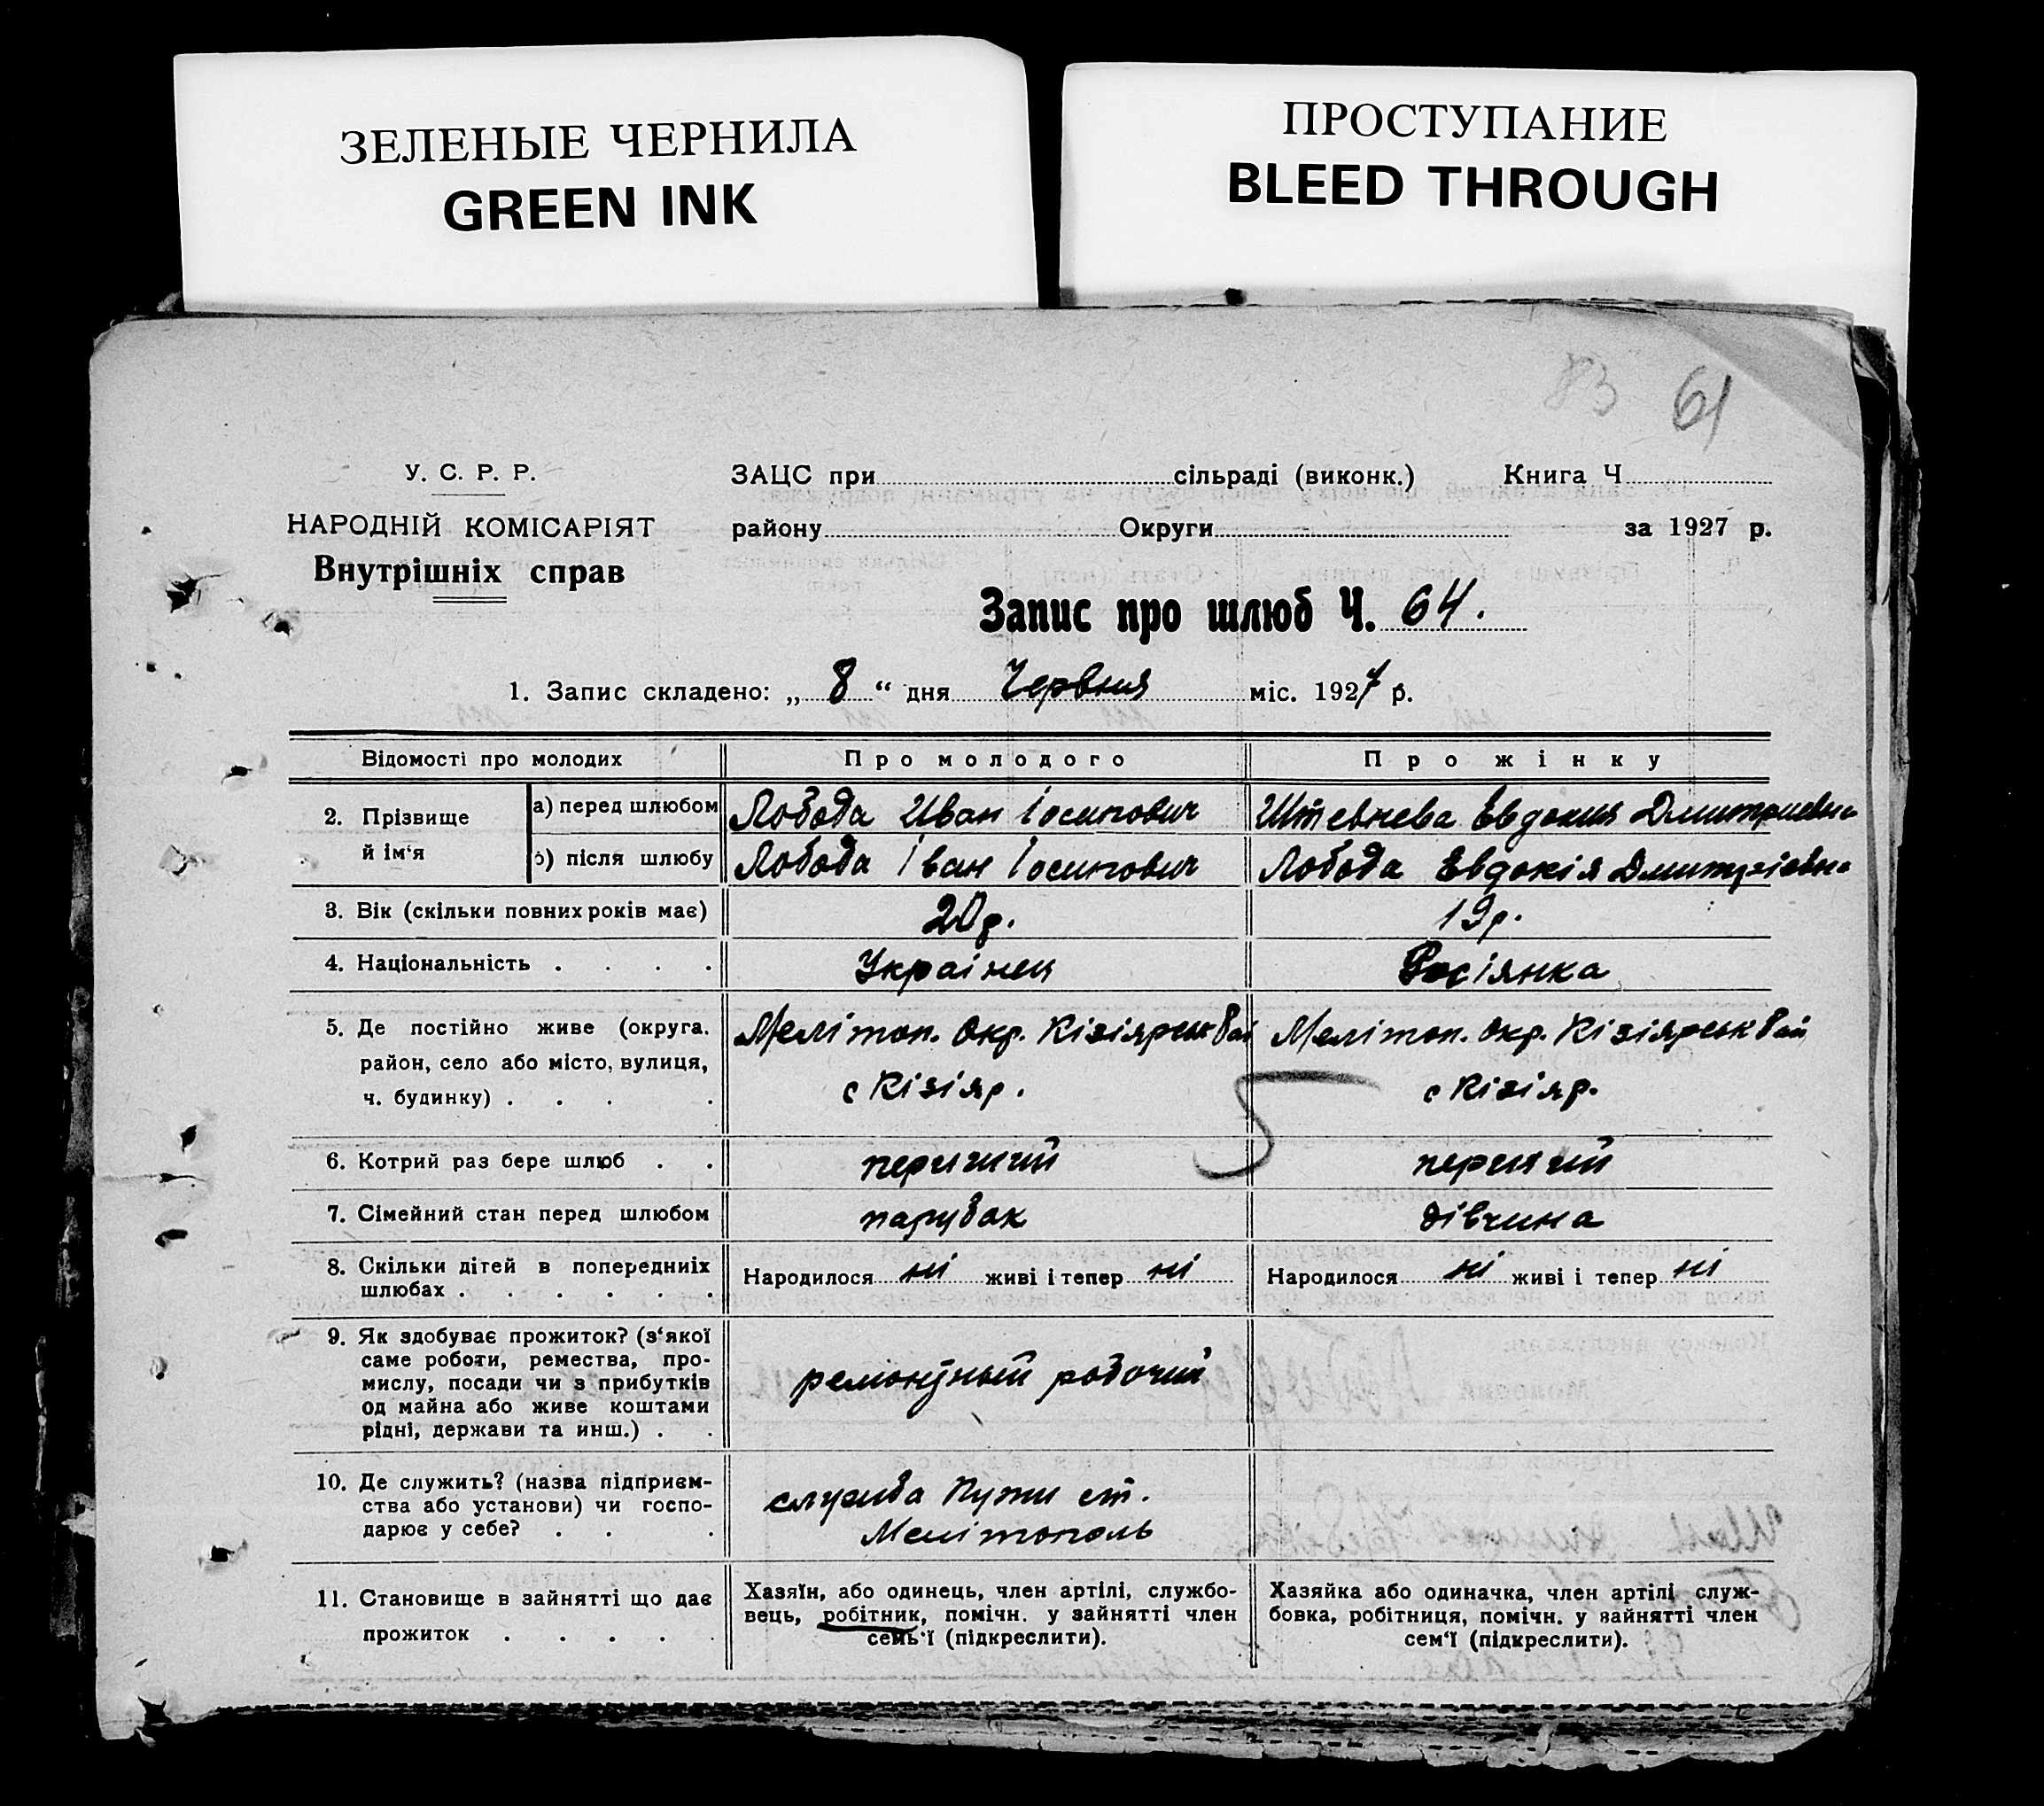 ЗЕЛЕНЫЕ ЧЕРНИЛА
GREEN INK
ПРОСТУПАНИЕ
BLEED THROUGH
83 61
У. С. Р. Р.
НАРОДНІЙ КОМІСАРІЯТ
Внутрішніх справ
ЗАЦС при сільраді (виконк.) Книга Ч
району Округи за 1927 р.
Запис про шлюб Ч. 64.
1. Запис складено: „ 8 “ дня Червня міс. 1927 р.
Відомості про молодих Про молодого Про жінку
2. Прізвище й ім‘я
а) перед шлюбом Лобода Иван Іосипович Штевнева Евдокия Дмитриевна
б) після шлюбу Лобода Іван Іосипович Лобода Евдокія Дмитріевна
3. Вік (скільки повних років має) 20 р. 19 р.
4. Національність . . . . Украінец Росіянка
5. Де постійно живе (округа. Мелітоп. Окр. Кізіярськ Рай Мелітоп. Окр. Кізіярськ Рай
район, село або місто, вулиця, с Кізіяр. с Кізіяр.
ч. будинку) . . . .
6. Котрий раз бере шлюб . . перший перший
7. Сімейний стан перед шлюбом парубок дівчина
8. Скільки дітей в попередниіх Народилося ні живі і тепер ні Народилося ні живі і тепер ні
шлюбах . . . . . .
9. Як здобуває прожиток? (з‘якої
саме роботи, ремества, про-
мислу, посади чи з прибутків ремонтный робочий
од майна або живе коштами
рідні, держави та инш.) . .
10. Де служить? (назва підприєм- служба Пути ст.
ства або установи) чи госпо- Мелітополь
дарює у себе? . . .
11. Становище в зайнятті що дає
прожиток . . . . .
Хазяїн, або одинець, член артілі, службо-
вець, робітник, помічн. у зайнятті член
семь‘ї (підкреслити).
Хазяйка або одиначка, член артілі служ-
бовка, робітниця, помічн. у зайнятті член
сем‘ї (підкреслити).